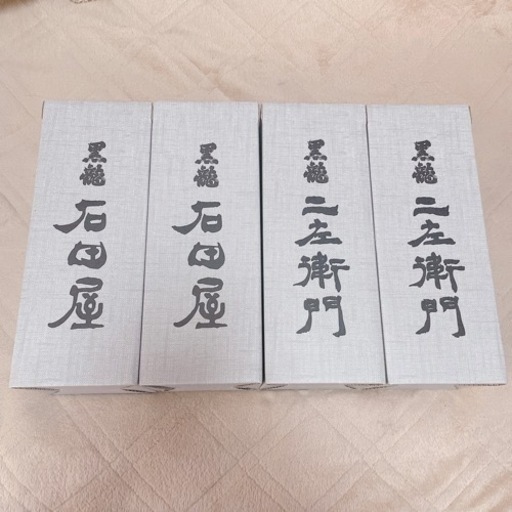 黒龍
石田屋
黒龍
石田屋
黒龍
二左衛門
黒龍
二左衛門